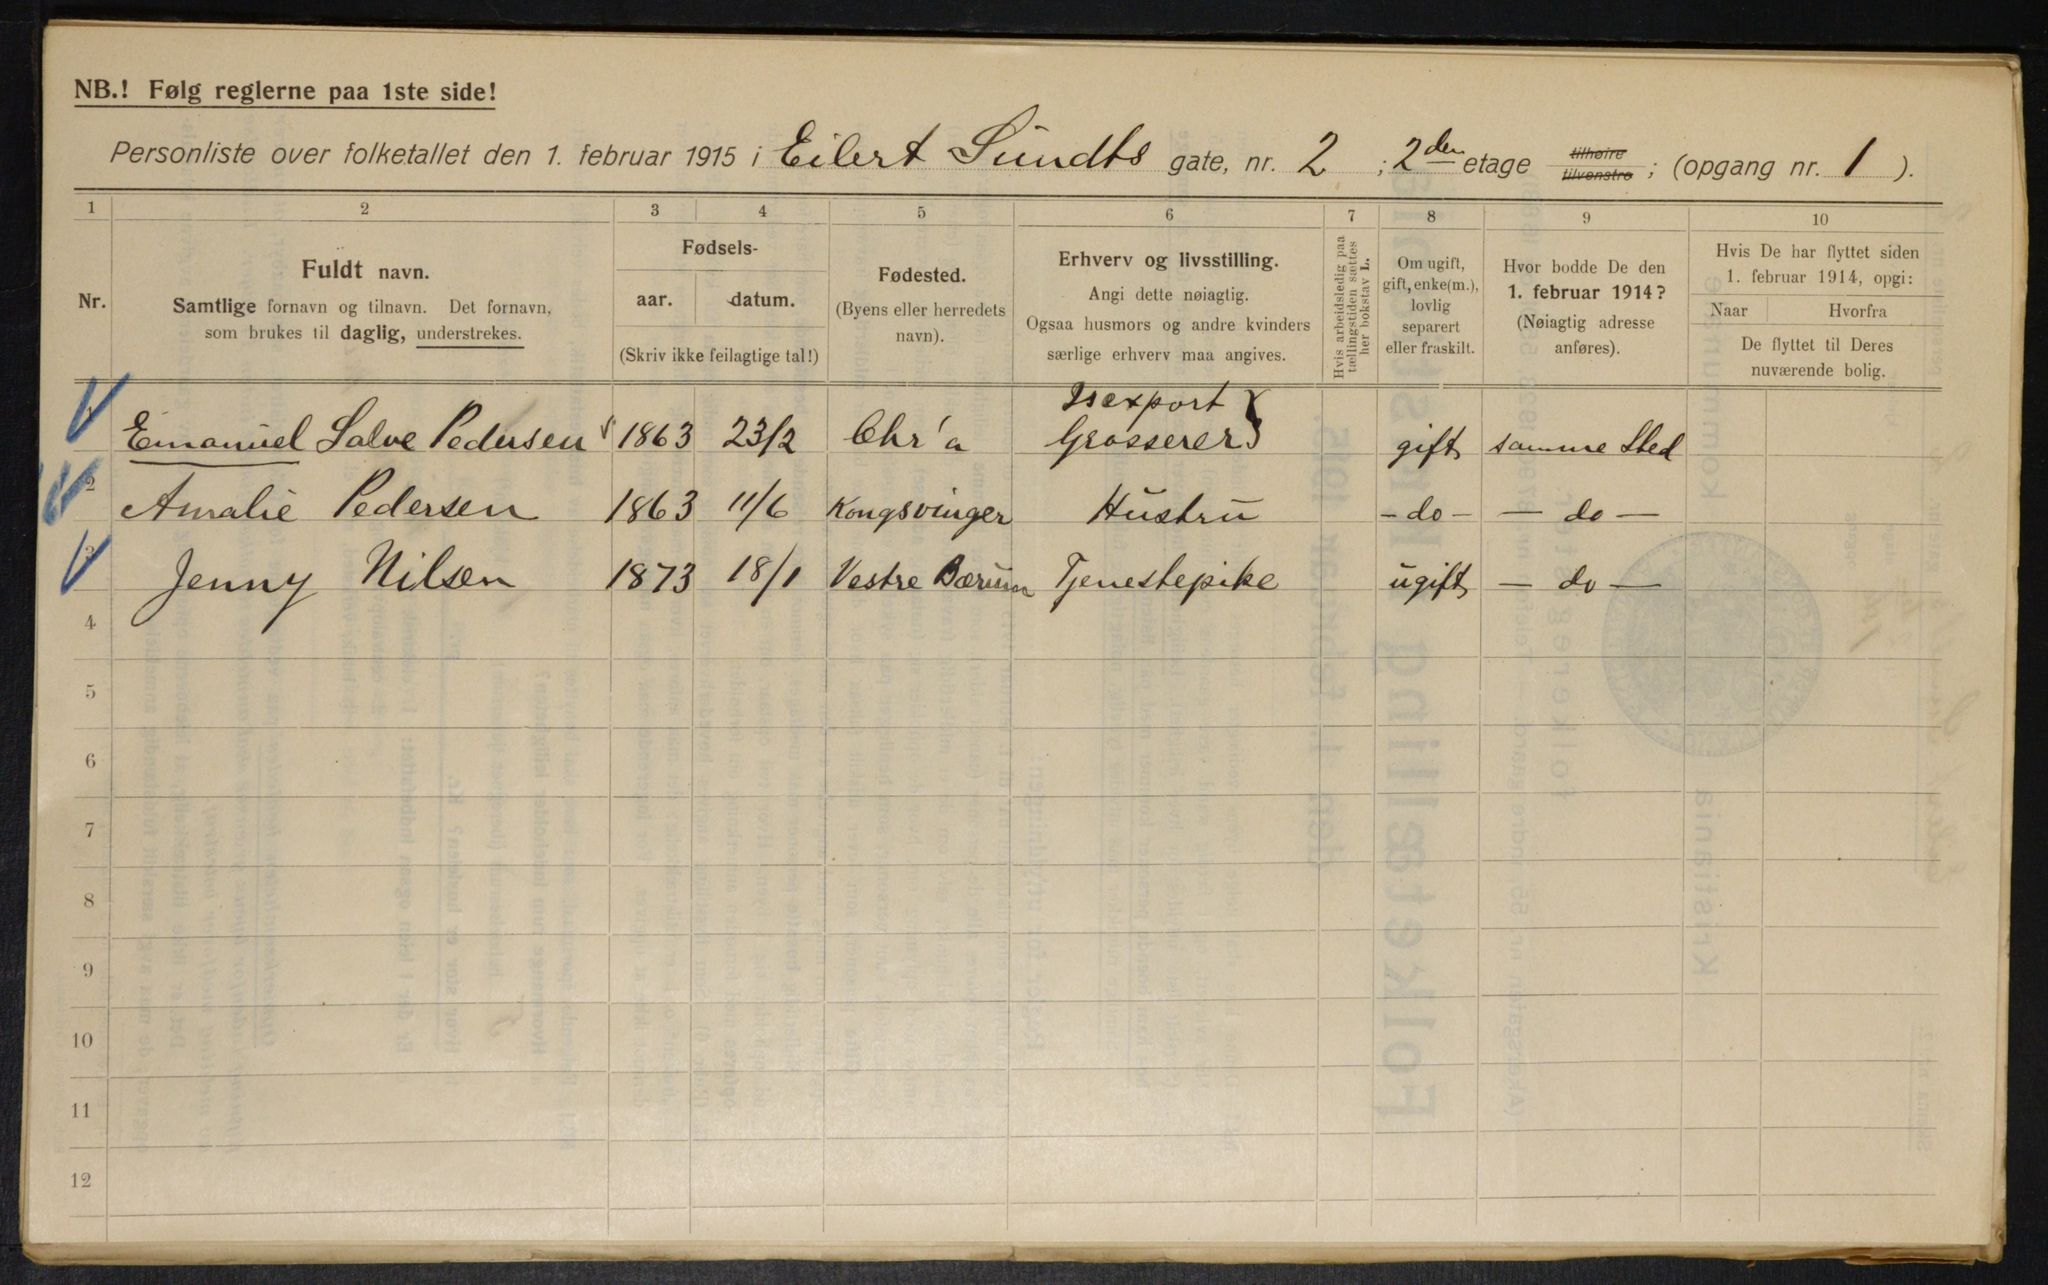 NB.! Følg reglerne paa 1ste side!
Personliste over folketallet den 1. februar 1915 i Eilert Sundts gate, nr. 2 ; 2den etage tilhøire tilvenstre ; (opgang nr. 1 ).
1 2 3 4 5 6 7 8 9 10
Nr.
Fuldt navn.
Samtlige fornavn og tilnavn. Det fornavn,
som brukes til daglig, understrekes.
Fødsels-
aar. datum.
(Skriv ikke feilagtige tal!)
Fødested.
(Byens eller herredets
navn).
Erhverv og livsstilling.
Angi dette nøiagtig.
Ogsaa husmors og andre kvinders
særlige erhverv maa angives.
Hvis arbeidsledig paa
tællingstiden sættes
her bokstav L.
Om ugift,
gift, enke(m.),
lovlig
separert
eller fraskilt.
Hvor bodde De den
1. februar 1914?
(Nøiagtig adresse
anføres).
Hvis De har flyttet siden
1. februar 1914, opgi:
Naar Hvorfra
De flyttet til Deres
nuværende bolig.
1 Emanuel Salve Pedersen 1863 23/2 Chr'a Isexport Grosserer gift samme Sted
2 Amalie Pedersen 1863 11/6 Kongsvinger Hustru - do - - do -
3 Jenny Nilsen 1873 18/1 Vestre Bærum Tjenestepike ugift - do -
4
5
6
7
8
9
10
11
12